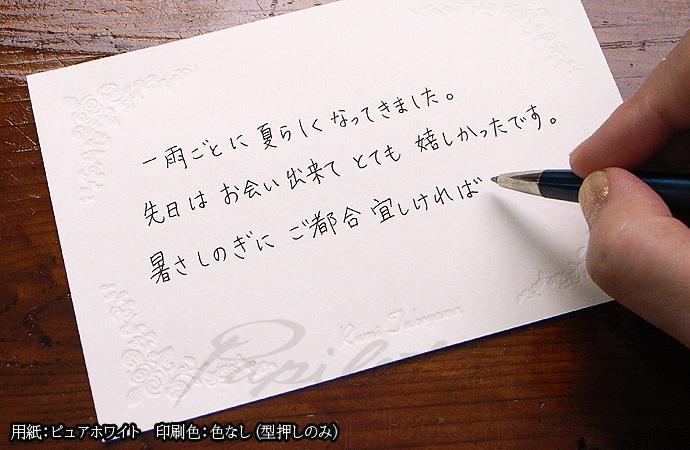 一雨ごとに 夏らしく なってきました。
先日は お会い 出来て とても 嬉しかったです。
暑さしのぎに ご都合 宜しければ
Kumi Takayama
用紙：ピュアホワイト 印刷色：色なし（型押しのみ）